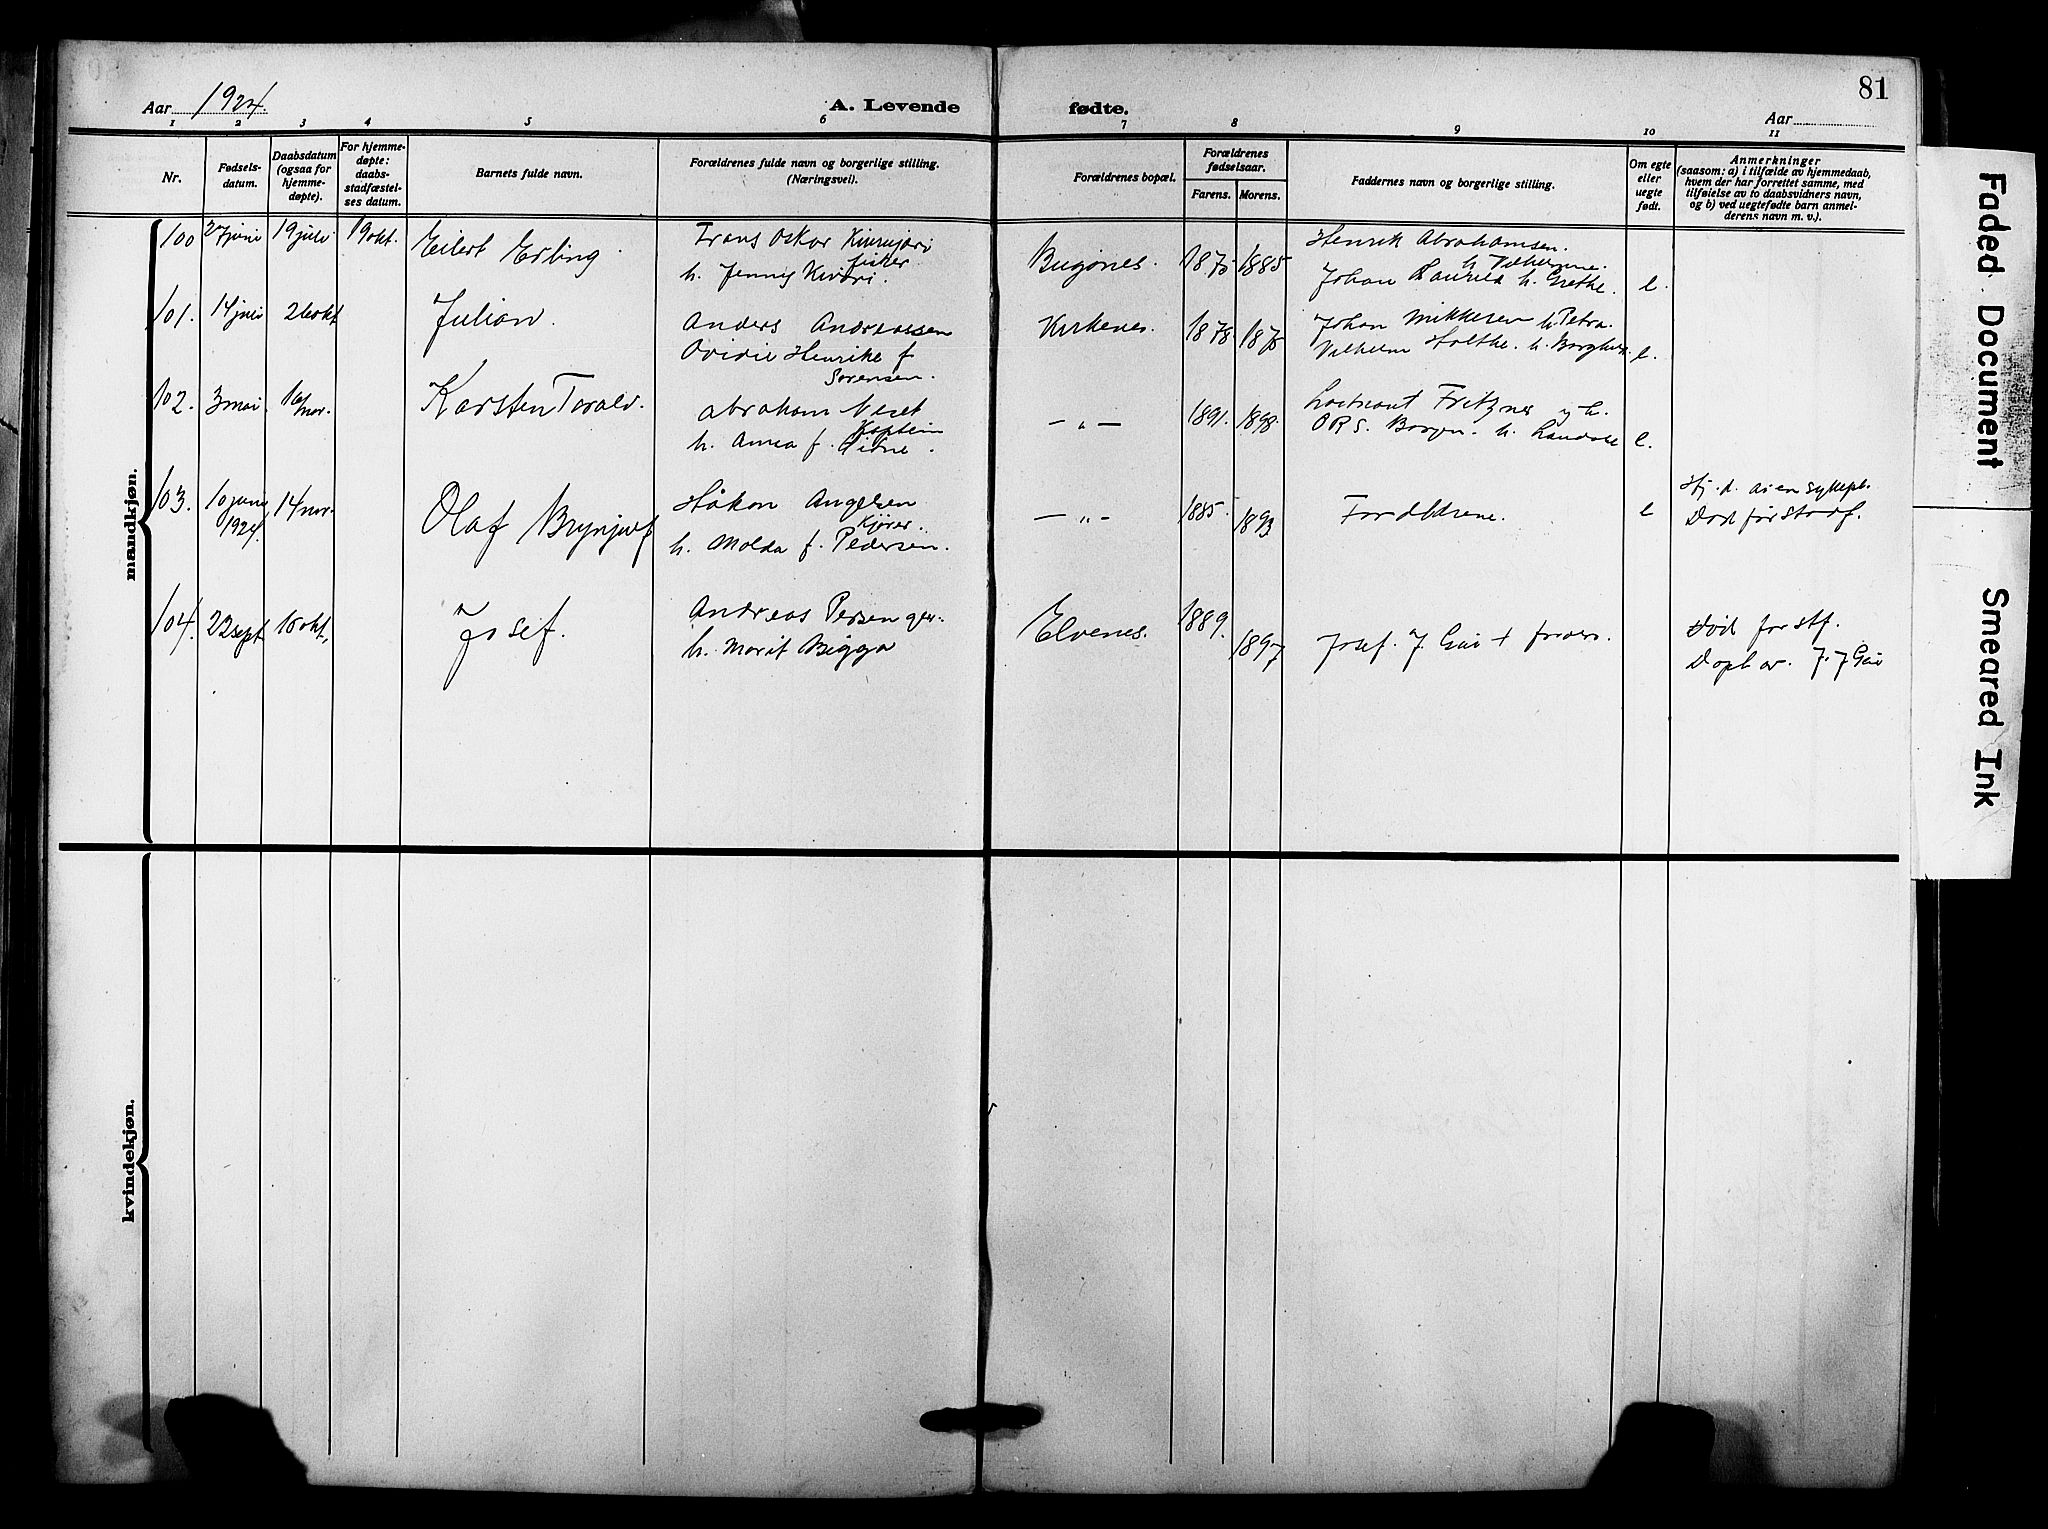 81
Aar 1924.
A. Levende fødte.
Aar
1 2 3 4 5 6 7 8 9 10 11
Nr.
Fødsels-
datum.
Daabsdatum
(ogsaa for
hjemme-
døpte).
For hjemme-
døpte:
daabs-
stadfæstel-
ses datum.
Barnets fulde navn.
Forældrenes fulde navn og borgerlige stilling.
(Næringsvei).
Forældrenes bopæl.
Forældrenes
fødselsaar.
Farens. Morens.
Faddernes navn og borgerlige stilling.
Om egte
eller
uegte
født.
Anmerkninger
(saasom: a) i tilfælde av hjemmedaab,
hvem der har forrettet samme, med
tilføielse av to daabsvidners navn,
og b) ved uegtefødte barn anmel-
derens navn m. v.).
mandkjøn.
100 27 juni 19 juli 19 okt. Eilert Erling
Frans Oskar
fisker
h. Jenny
Bugønes. 1875 1885
Henrik Abrahamsen
h.
Johan h. Grethe. e.
101. 14 juni 26 okt Julian.
Anders Andreassen
Ovidie Henrike f
Sørensen.
Kirkenes. 1878. 1875
Johan Mikkelsen h. Petra.
Vilhelm Holthe. h. e.
102. 3 mai. 16 nov. Karsten Torald.
Abraham
Kaptein
h. Anna f.
— „ — 1891. 1898.
Fritzner og h.
h. e.
103. 10 juni 1924. 14 nov. Olaf Brynjulf
Håkon Angelsen
Kjører
h. Molda f. Pedersen.
— „ – 1885. 1893
Foreldrene. e
Hj. d. av en sykepl.
Død før stadf.
104. 22 sept 10 okt. Josef.
Andreas Persen
h. Marit Bigga
Elvenes. 1889. 1897
Josef. J. +
Død før stf.
Døpt av. J. J
kvindekjøn.
Faded Document
Smeared Ink